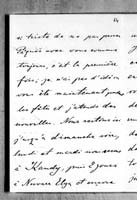 si triste de ne pas
avec vous comme
toujours, c'est la première
fois; je n'ai pas d'idée
vos êtes maintenant
les fêtes et j'attends des
nouvelles. Nous restons ici
jusqu'à dimanche soir,
lundi et mardi nous serons
à Kandy, puis 2 jours
à Nuwara Elya et encore